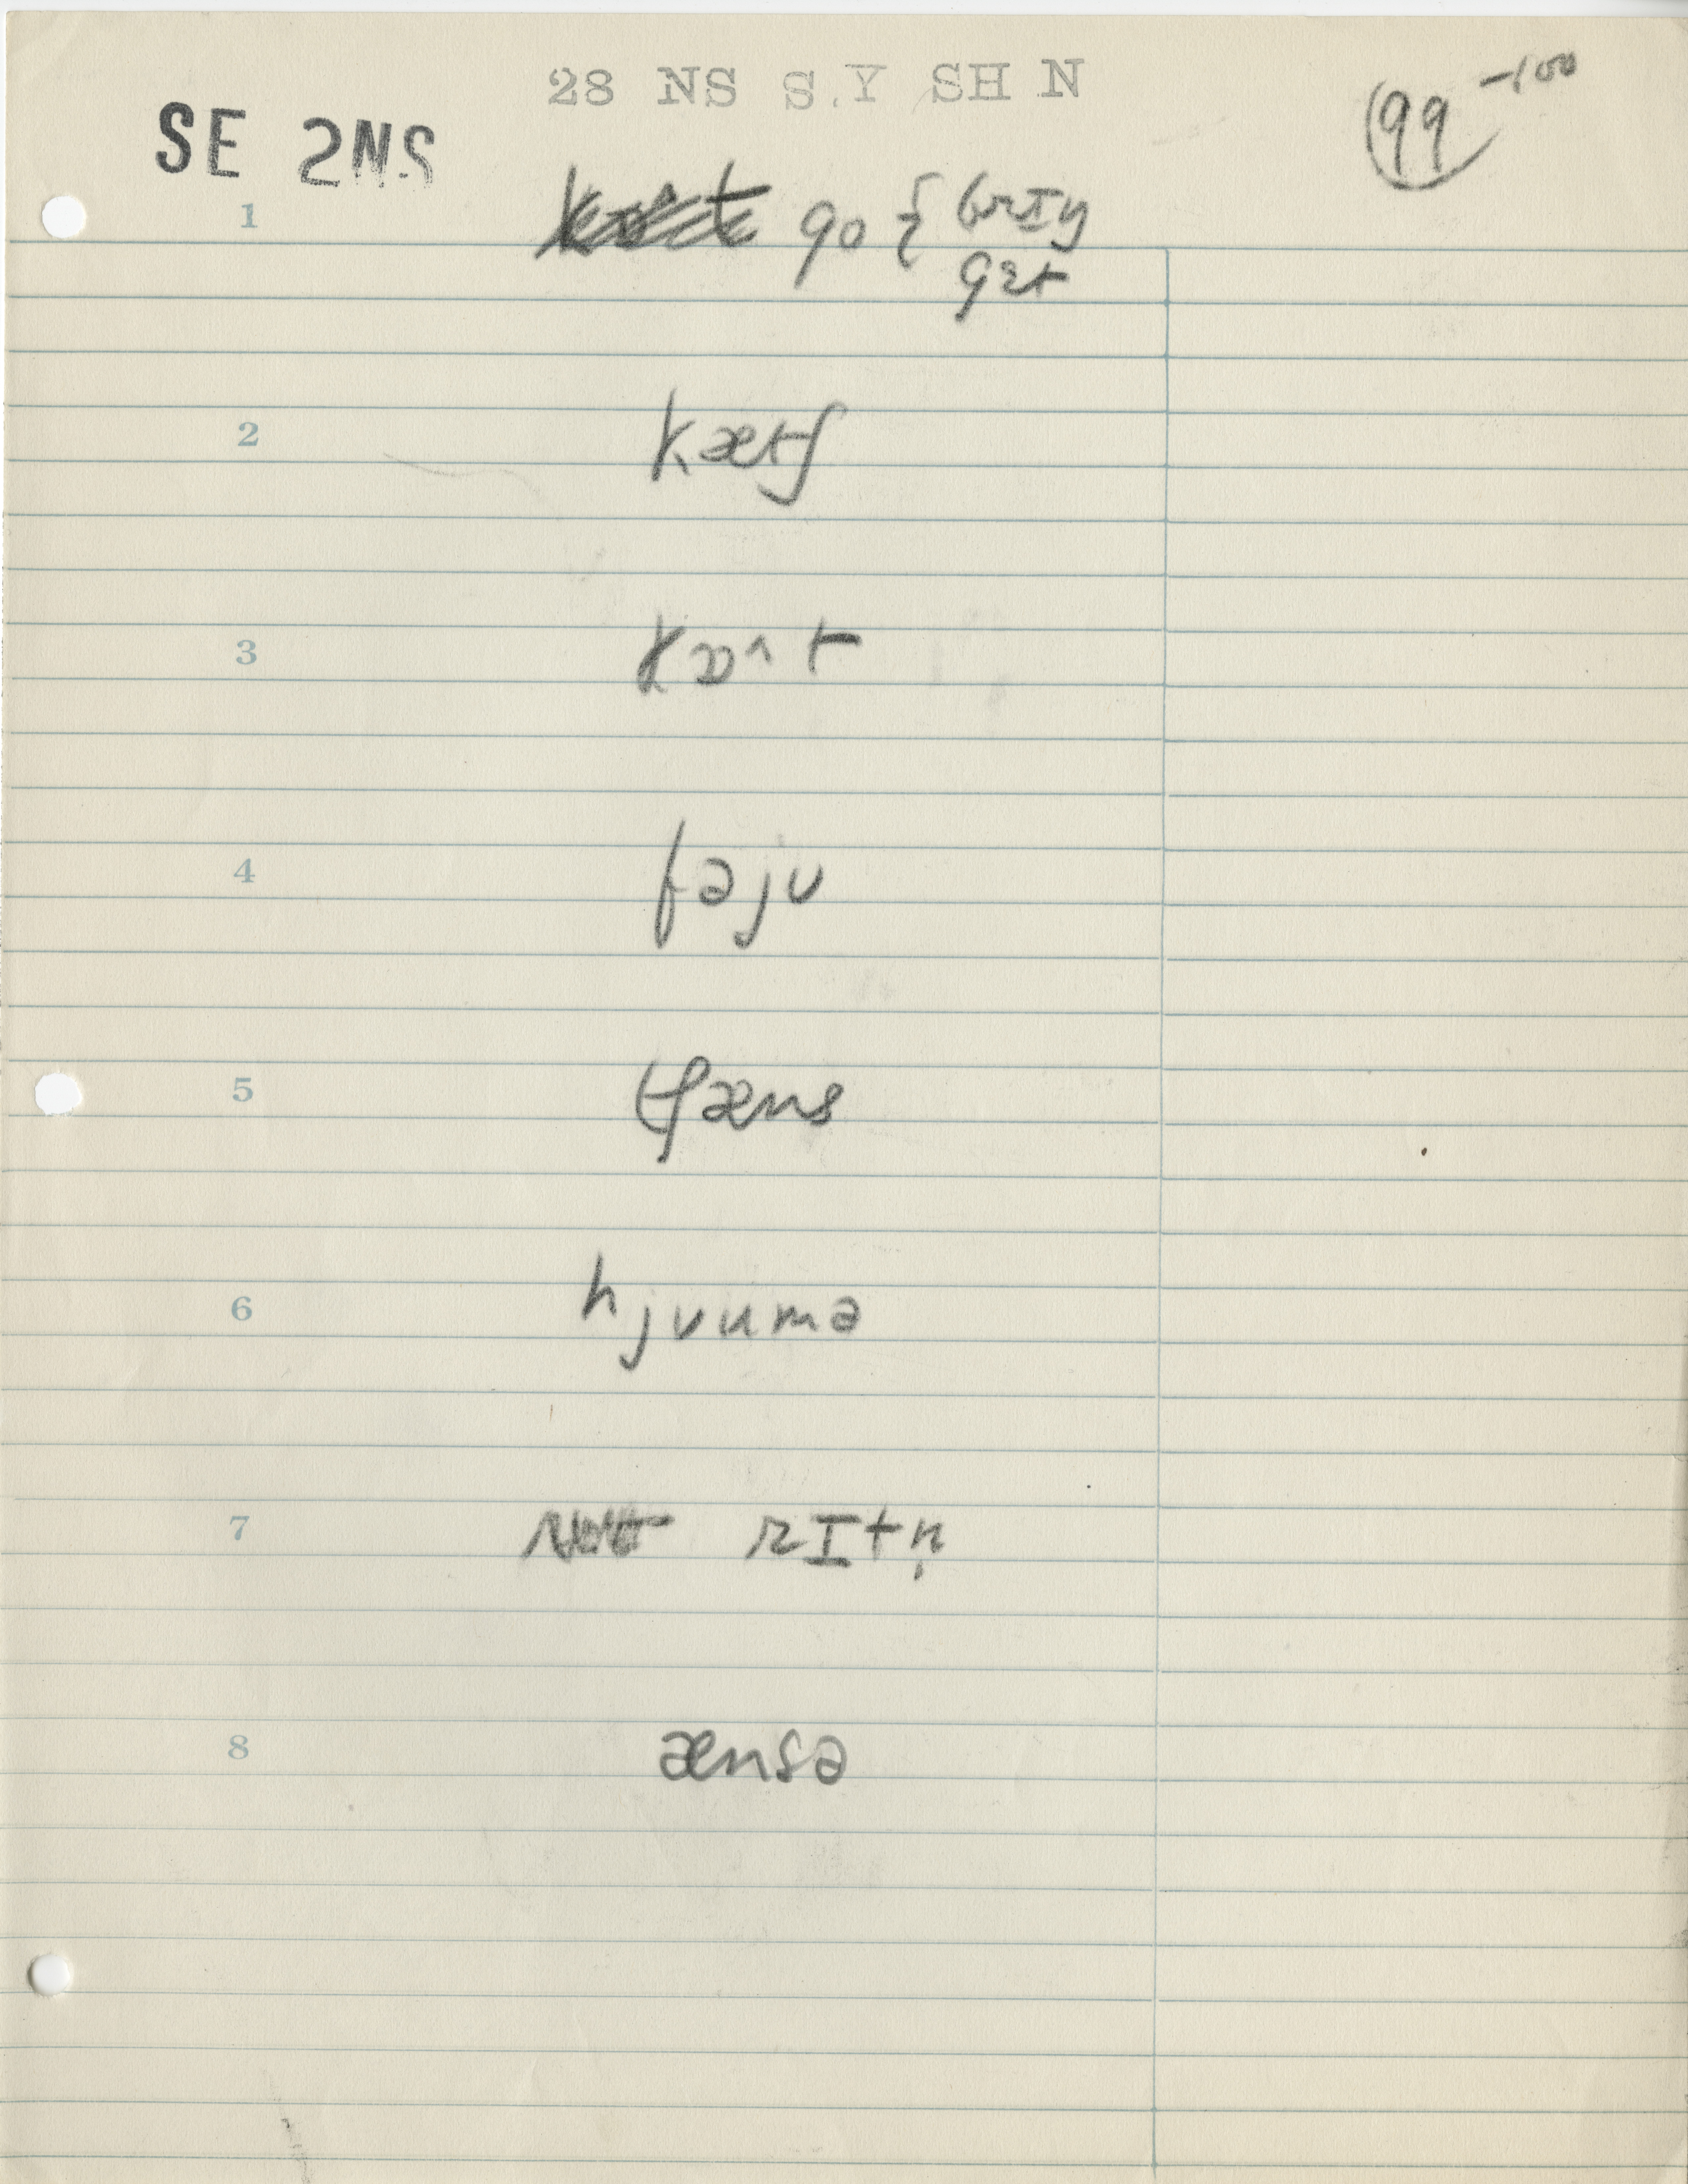 28 NS S.Y SH N
99 -100
SE 2NS
1 go { brɪŋ
gɛt
2 kætʃ
3 kɒ^t
4 fəju
5 tʃæns
6 hjvumə
7 rɪtn̩
8 ænsə